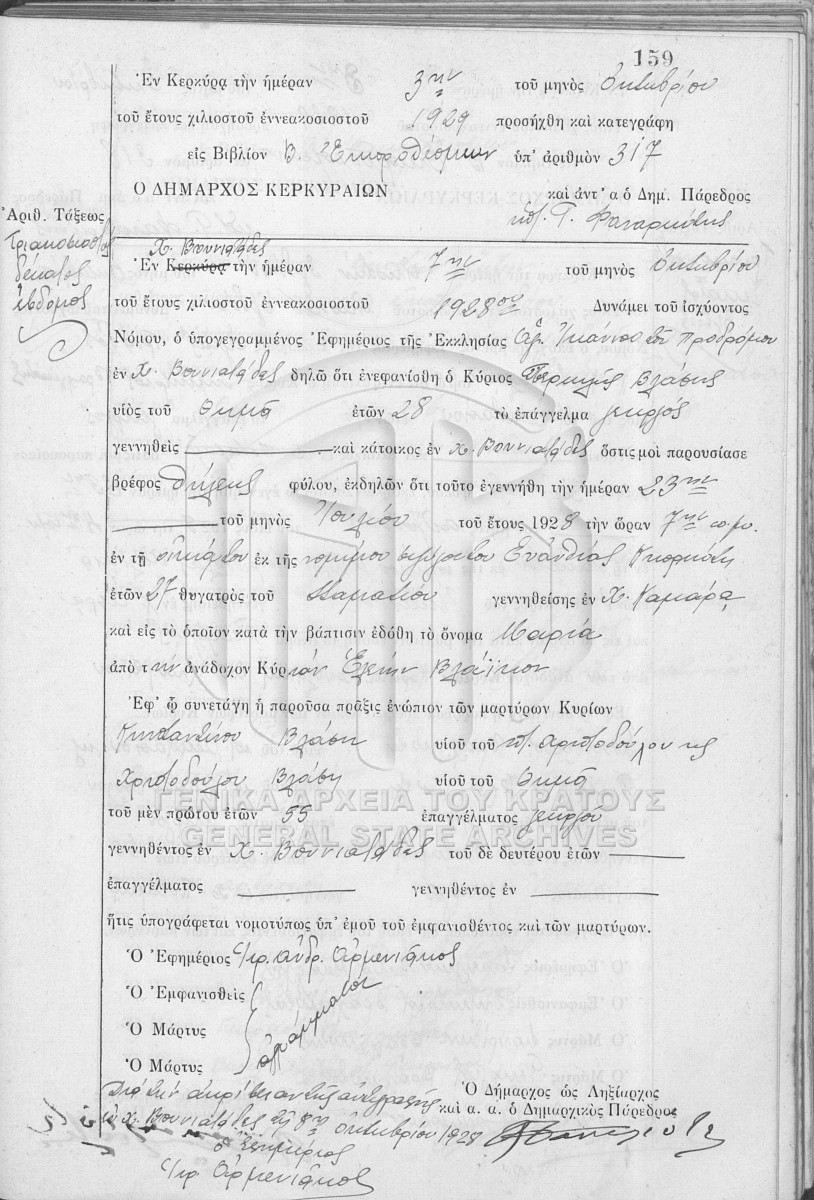 159
Ἐν Κερκύρᾳ τὴν ἡμέραν 3ην τοῦ μηνὸς Ὀκτωβρίου
τοῦ ἔτους χιλιοστοῦ ἐννεακοσιοστοῦ 1929 προσήχθη καὶ κατεγράφη
εἰς Βιβλίον Β. Ἐκπροθέσμων ὑπ' ἀριθμὸν 317
Ο ΔΗΜΑΡΧΟΣ ΚΕΡΚΥΡΑΙΩΝ καὶ ἀντ' α ὁ Δημ. Πάρεδρος
Ἀριθ. Τάξεως
Τριακοσιοστὸς
δέκατος
ἕβδομος
Χ. Βουνιατάδες
Ἐν Κερκύρᾳ τὴν ἡμέραν 7ην τοῦ μηνὸς Ὀκτωβρίου
τοῦ ἔτους χιλιοστοῦ ἐννεακοσιοστοῦ 1928ου Δυνάμει τοῦ ἰσχύοντος
Νόμου, ὁ ὑπογεγραμμένος Ἐφημέριος τῆς Ἐκκλησίας Ἁγ. Ἰωάννου τοῦ Προδρόμου
ἐν Χ. Βουνιατάδες δηλῶ ὅτι ἐνεφανίσθη ὁ Κύριος Περικλῆς Βλάσης
υἱὸς τοῦ Θωμᾶ ἐτῶν 28 τὸ ἐπάγγελμα γεωργός
γεννηθεὶς καὶ κάτοικος ἐν Χ. Βουνιατάδες ὅστις μοὶ παρουσίασε
βρέφος θήλεος φύλου, ἐκδηλῶν ὅτι τοῦτο ἐγεννήθη τὴν ἡμέραν 23ην
τοῦ μηνὸς Ἰουλίου τοῦ ἔτους 1928 τὴν ὥραν 7ην π.μ.
ἐν τῇ οἰκίᾳ του ἐκ τῆς νομίμου συζύγου του Εὐανθίας
ἐτῶν 27 θυγατρὸς τοῦ Σταματίου γεννηθείσης ἐν Χ. Καμάρα
καὶ εἰς τὸ ὁποῖον κατὰ τὴν βάπτισιν ἐδόθη τὸ ὄνομα Μαρία
ἀπὸ τὴν ἀνάδοχον Κυρίαν Ἑλένην Βλάϊκου
Ἐφ' ᾧ συνετάγη ἡ παροῦσα πρᾶξις ἐνώπιον τῶν μαρτύρων Κυρίων
Κωνσταντίνου Βλάση υἱοῦ τοῦ Χριστοδούλου
Χριστοδούλου Βλάση υἱοῦ τοῦ Θωμᾶ
ΓΕΝΙΚΑ ΑΡΧΕΙΑ ΤΟΥ ΚΡΑΤΟΥΣ
τοῦ μὲν πρώτου ἐτῶν 55 ἐπαγγέλματος γεωργοῦ
GENERAL STATE ARCHIVES
γεννηθέντος ἐν Χ. Βουνιατάδες τοῦ δὲ δευτέρου ἐτῶν
ἐπαγγέλματος γεννηθέντος ἐν
ἥτις ὑπογράφεται νομοτύπως ὑπ' ἐμοῦ τοῦ ἐμφανισθέντος καὶ τῶν μαρτύρων.
Ὁ Ἐφημέριος Ἱερ. Ἀνδρ. Ἀρμενιάκος
Ὁ Ἐμφανισθεὶς
Ὁ Μάρτυς ἀγράμματοι
Ὁ Μάρτυς
Ὁ Δήμαρχος ὡς Ληξίαρχος
καὶ α. α. ὁ Δημαρχικὸς Πάρεδρος
Διὰ τὴν ἀκρίβειαν τῆς ἀντιγραφῆς
ἐν Χ. Βουνιατάδες τῇ 8ῃ Ὀκτωβρίου 1928
ὁ Ἐφημέριος
Ἱερ. Ἀρμενιάκος